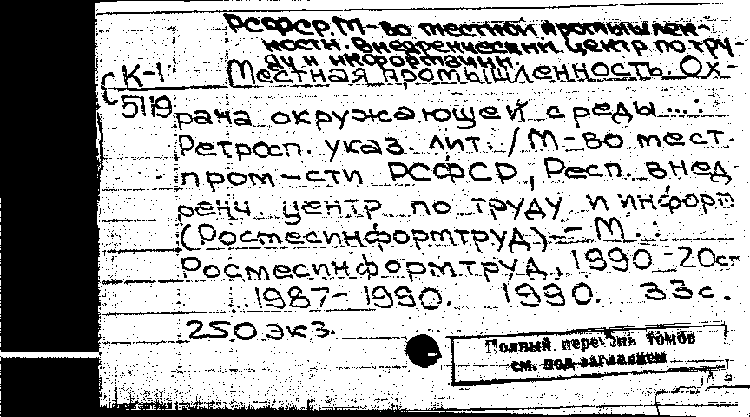 РСФСР. М-во местной промышлен-
ности. Внедренческий центр по тру-
ду и информации.
К-1 Местная промышленность. Ох-
С 5119 рана окружающей среды...:
Ретросп. указ. лит. / М-во мест.
пром-сти РСФСР, Респ. внед-
ренч. центр по труду и информ
(Росместинформтруд). – М.:
Росместинформтруд, 1990 - 20см
1987-1990. 1990. 33с.
250 экз.
Полный перечень томов
см. под заглавием